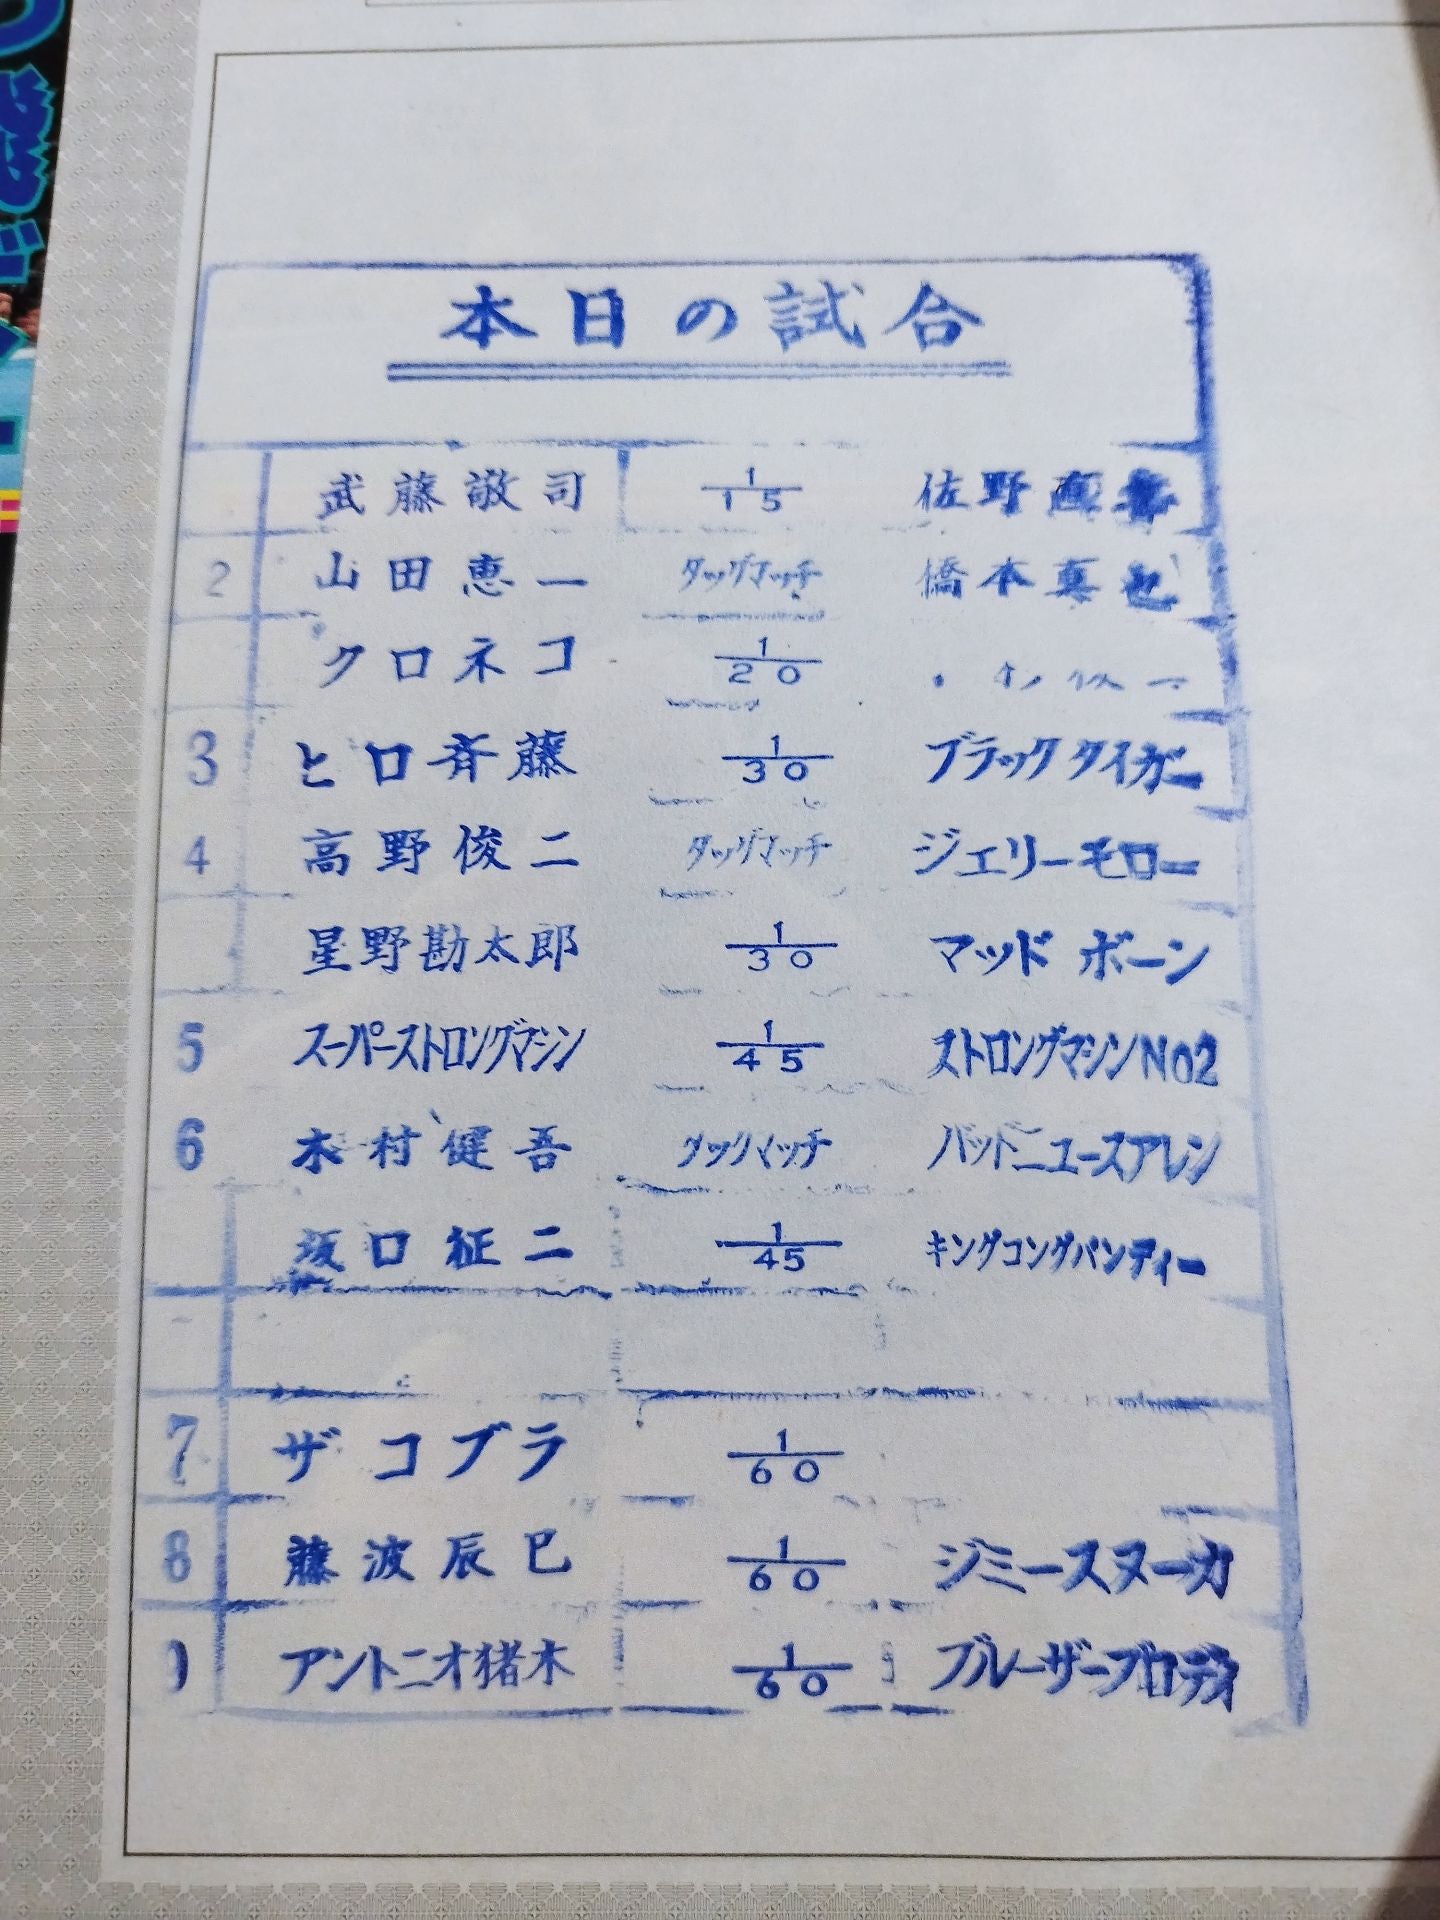 本日の試合
武藤敬司 1/15 佐野直
2 山田恵一 タッグマッチ 橋本真也
クロネコ 1/20
3 ヒロ斉藤 1/30 ブラックタイガー
4 高野俊二 タッグマッチ ジェリーモロー
星野勘太郎 1/30 マッドボーン
5 スーパーストロングマシン 1/45 ストロングマシンNo2
6 木村健吾 タッグマッチ バッドニュースアレン
坂口征二 1/45 キングコングバンディー
7 ザコブラ 1/60
8 藤波辰巳 1/60 ジミースヌーカ
アントニオ猪木 1/60 ブルーザーブロディ